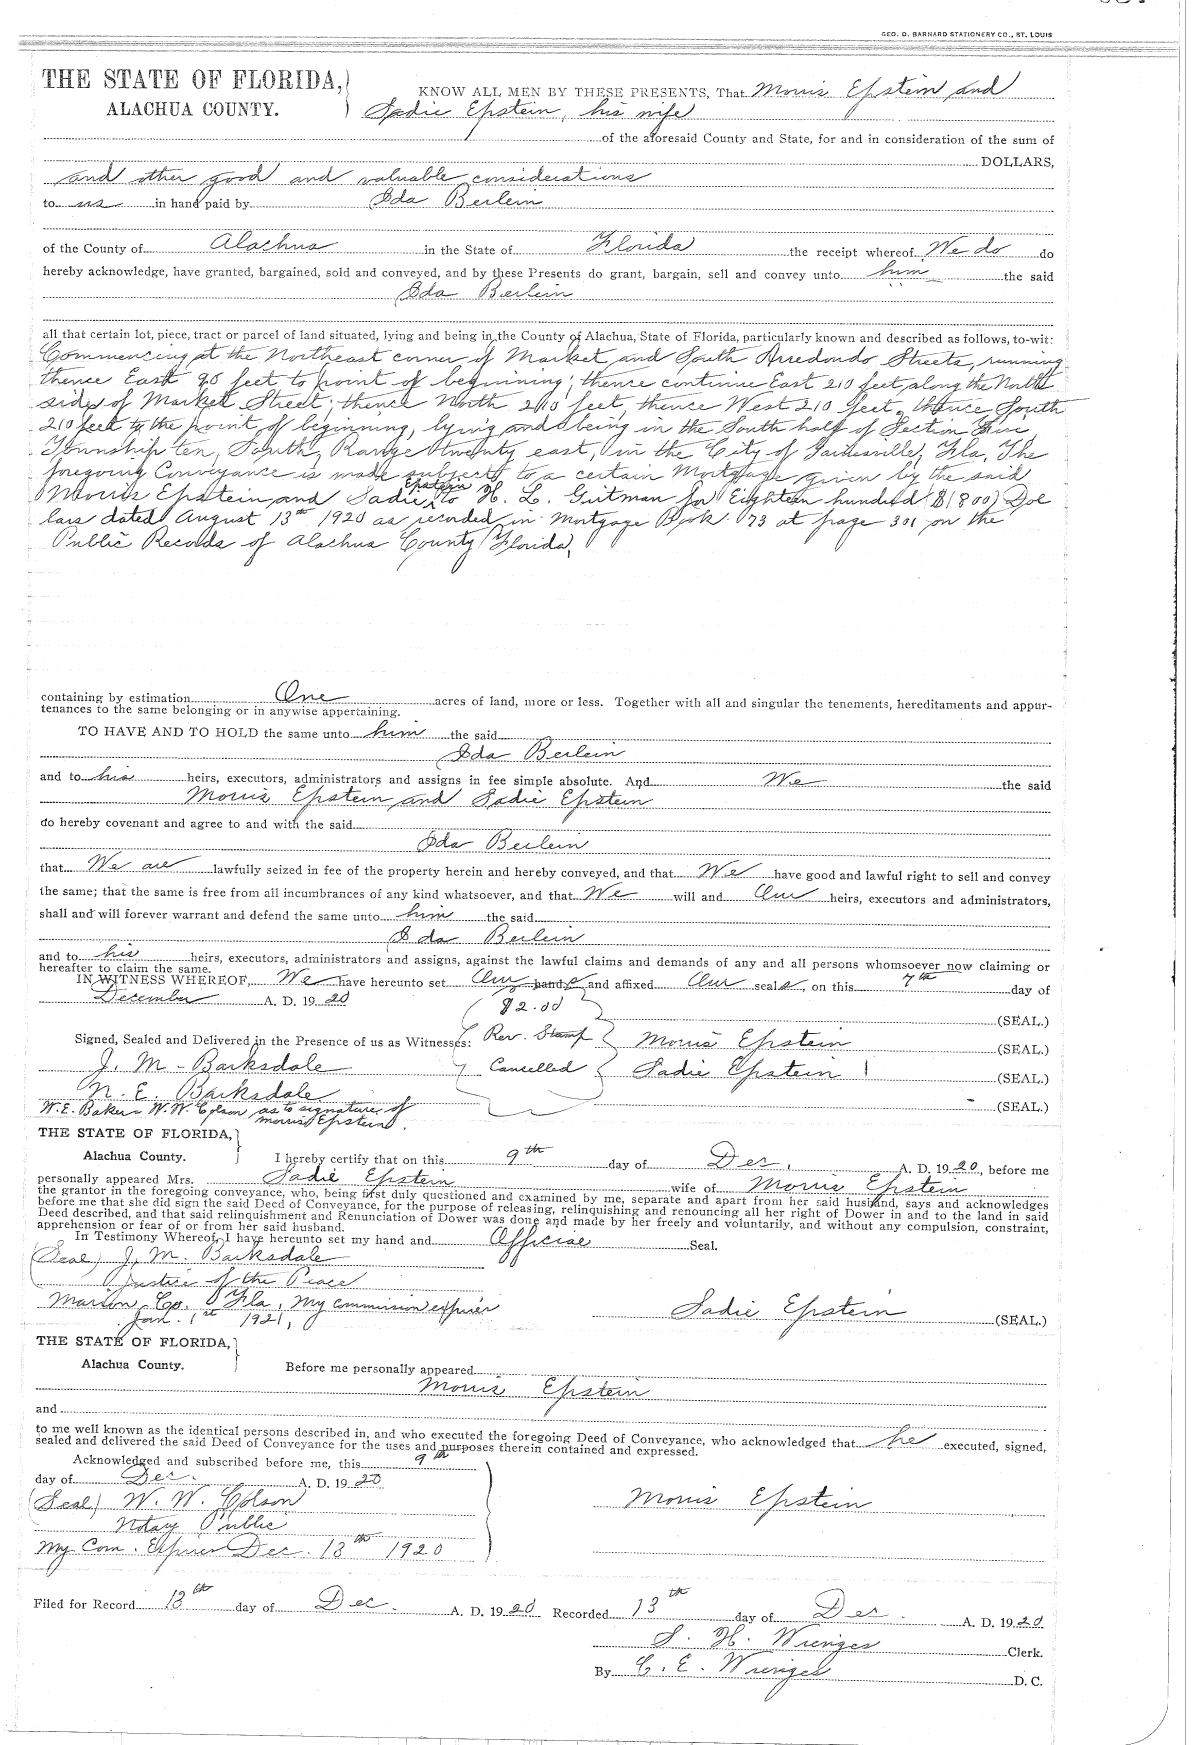 GEO. D. BARNARD STATIONERY CO., ST. LOUIS
THE STATE OF FLORIDA,
ALACHUA COUNTY.
KNOW ALL MEN BY THESE PRESENTS, That Morris Epstein and
Sadie Epstein, his wife
of the aforesaid County and State, for and in consideration of the sum of
DOLLARS,
and other good and valuable considerations
to us in hand paid by Ida Berlein
of the County of Alachua in the State of Florida the receipt whereof We do do
hereby acknowledge, have granted, bargained, sold and conveyed, and by these Presents do grant, bargain, sell and convey unto him the said
Ida Berlein
all that certain lot, piece, tract or parcel of land situated, lying and being in the County of Alachua, State of Florida, particularly known and described as follows, to-wit:
Commencing at the Northeast corner of Market and South Arredondo Streets, running
thence East 90 feet to point of beginning; thence continue East 210 feet, along the North
side of Market Street; thence North 210 feet, thence West 210 feet, thence South
210 feet to the point of beginning, lying and being in the South half of Section Five
Township ten, South, Range twenty east, in the City of Gainesville, Fla, The
foregoing Conveyance is made subject to a certain Mortgage given by the said
Morris Epstein and Sadie Epstein to H. L. Gitman for Eighteen hundred ($1800) Dol
lars dated August 13th 1920 as recorded in Mortgage Book 73 at page 301 on the
Public Records of Alachua County Florida,
containing by estimation One acres of land, more or less. Together with all and singular the tenements, hereditaments and appur-
tenances to the same belonging or in anywise appertaining.
TO HAVE AND TO HOLD the same unto him the said
Ida Berlein
and to his heirs, executors, administrators and assigns in fee simple absolute. And We the said
Morris Epstein and Sadie Epstein
do hereby covenant and agree to and with the said
Ida Berlein
that We are lawfully seized in fee of the property herein and hereby conveyed, and that We have good and lawful right to sell and convey
the same; that the same is free from all incumbrances of any kind whatsoever, and that We will and Our heirs, executors and administrators,
shall and will forever warrant and defend the same unto him the said
Ida Berlein
and to his heirs, executors, administrators and assigns, against the lawful claims and demands of any and all persons whomsoever now claiming or
hereafter to claim the same.
IN WITNESS WHEREOF, We have hereunto set Our hands and affixed Our seals, on this 7th day of
December A. D. 1920
$2.00
(SEAL.)
Signed, Sealed and Delivered in the Presence of us as Witnesses: Rev. Stamp Morris Epstein (SEAL.)
J. M. Barksdale Cancelled Sadie Epstein (SEAL.)
N. E. Barksdale (SEAL.)
W.E. Baker W.W. Colson as to signature of
Morris Epstein.
THE STATE OF FLORIDA,
Alachua County. I hereby certify that on this 9th day of Dec. A. D. 1920, before me
personally appeared Mrs. Sadie Epstein wife of Morris Epstein
the grantor in the foregoing conveyance, who, being first duly questioned and examined by me, separate and apart from her said husband, says and acknowledges
before me that she did sign the said Deed of Conveyance, for the purpose of releasing, relinquishing and renouncing all her right of Dower in and to the land in said
Deed described, and that said relinquishment and Renunciation of Dower was done and made by her freely and voluntarily, and without any compulsion, constraint,
apprehension or fear of or from her said husband.
In Testimony Whereof, I have hereunto set my hand and Official Seal.
(Seal) J. M. Barksdale
Justice of the Peace
Marion Co. Fla, My commission expires
Jan. 1st 1921,
Sadie Epstein (SEAL.)
THE STATE OF FLORIDA,
Alachua County. Before me personally appeared
Morris Epstein
and
to me well known as the identical persons described in, and who executed the foregoing Deed of Conveyance, who acknowledged that he executed, signed,
sealed and delivered the said Deed of Conveyance for the uses and purposes therein contained and expressed.
Acknowledged and subscribed before me, this 9th
day of Dec. A. D. 1920
(Seal) W. W. Colson Morris Epstein
Notary Public
My Com. Expires Dec. 13th 1920
Filed for Record 13th day of Dec. A. D. 1920 Recorded 13th day of Dec. A. D. 1920
S. H. Wienges Clerk.
By C. E. Wienges D. C.